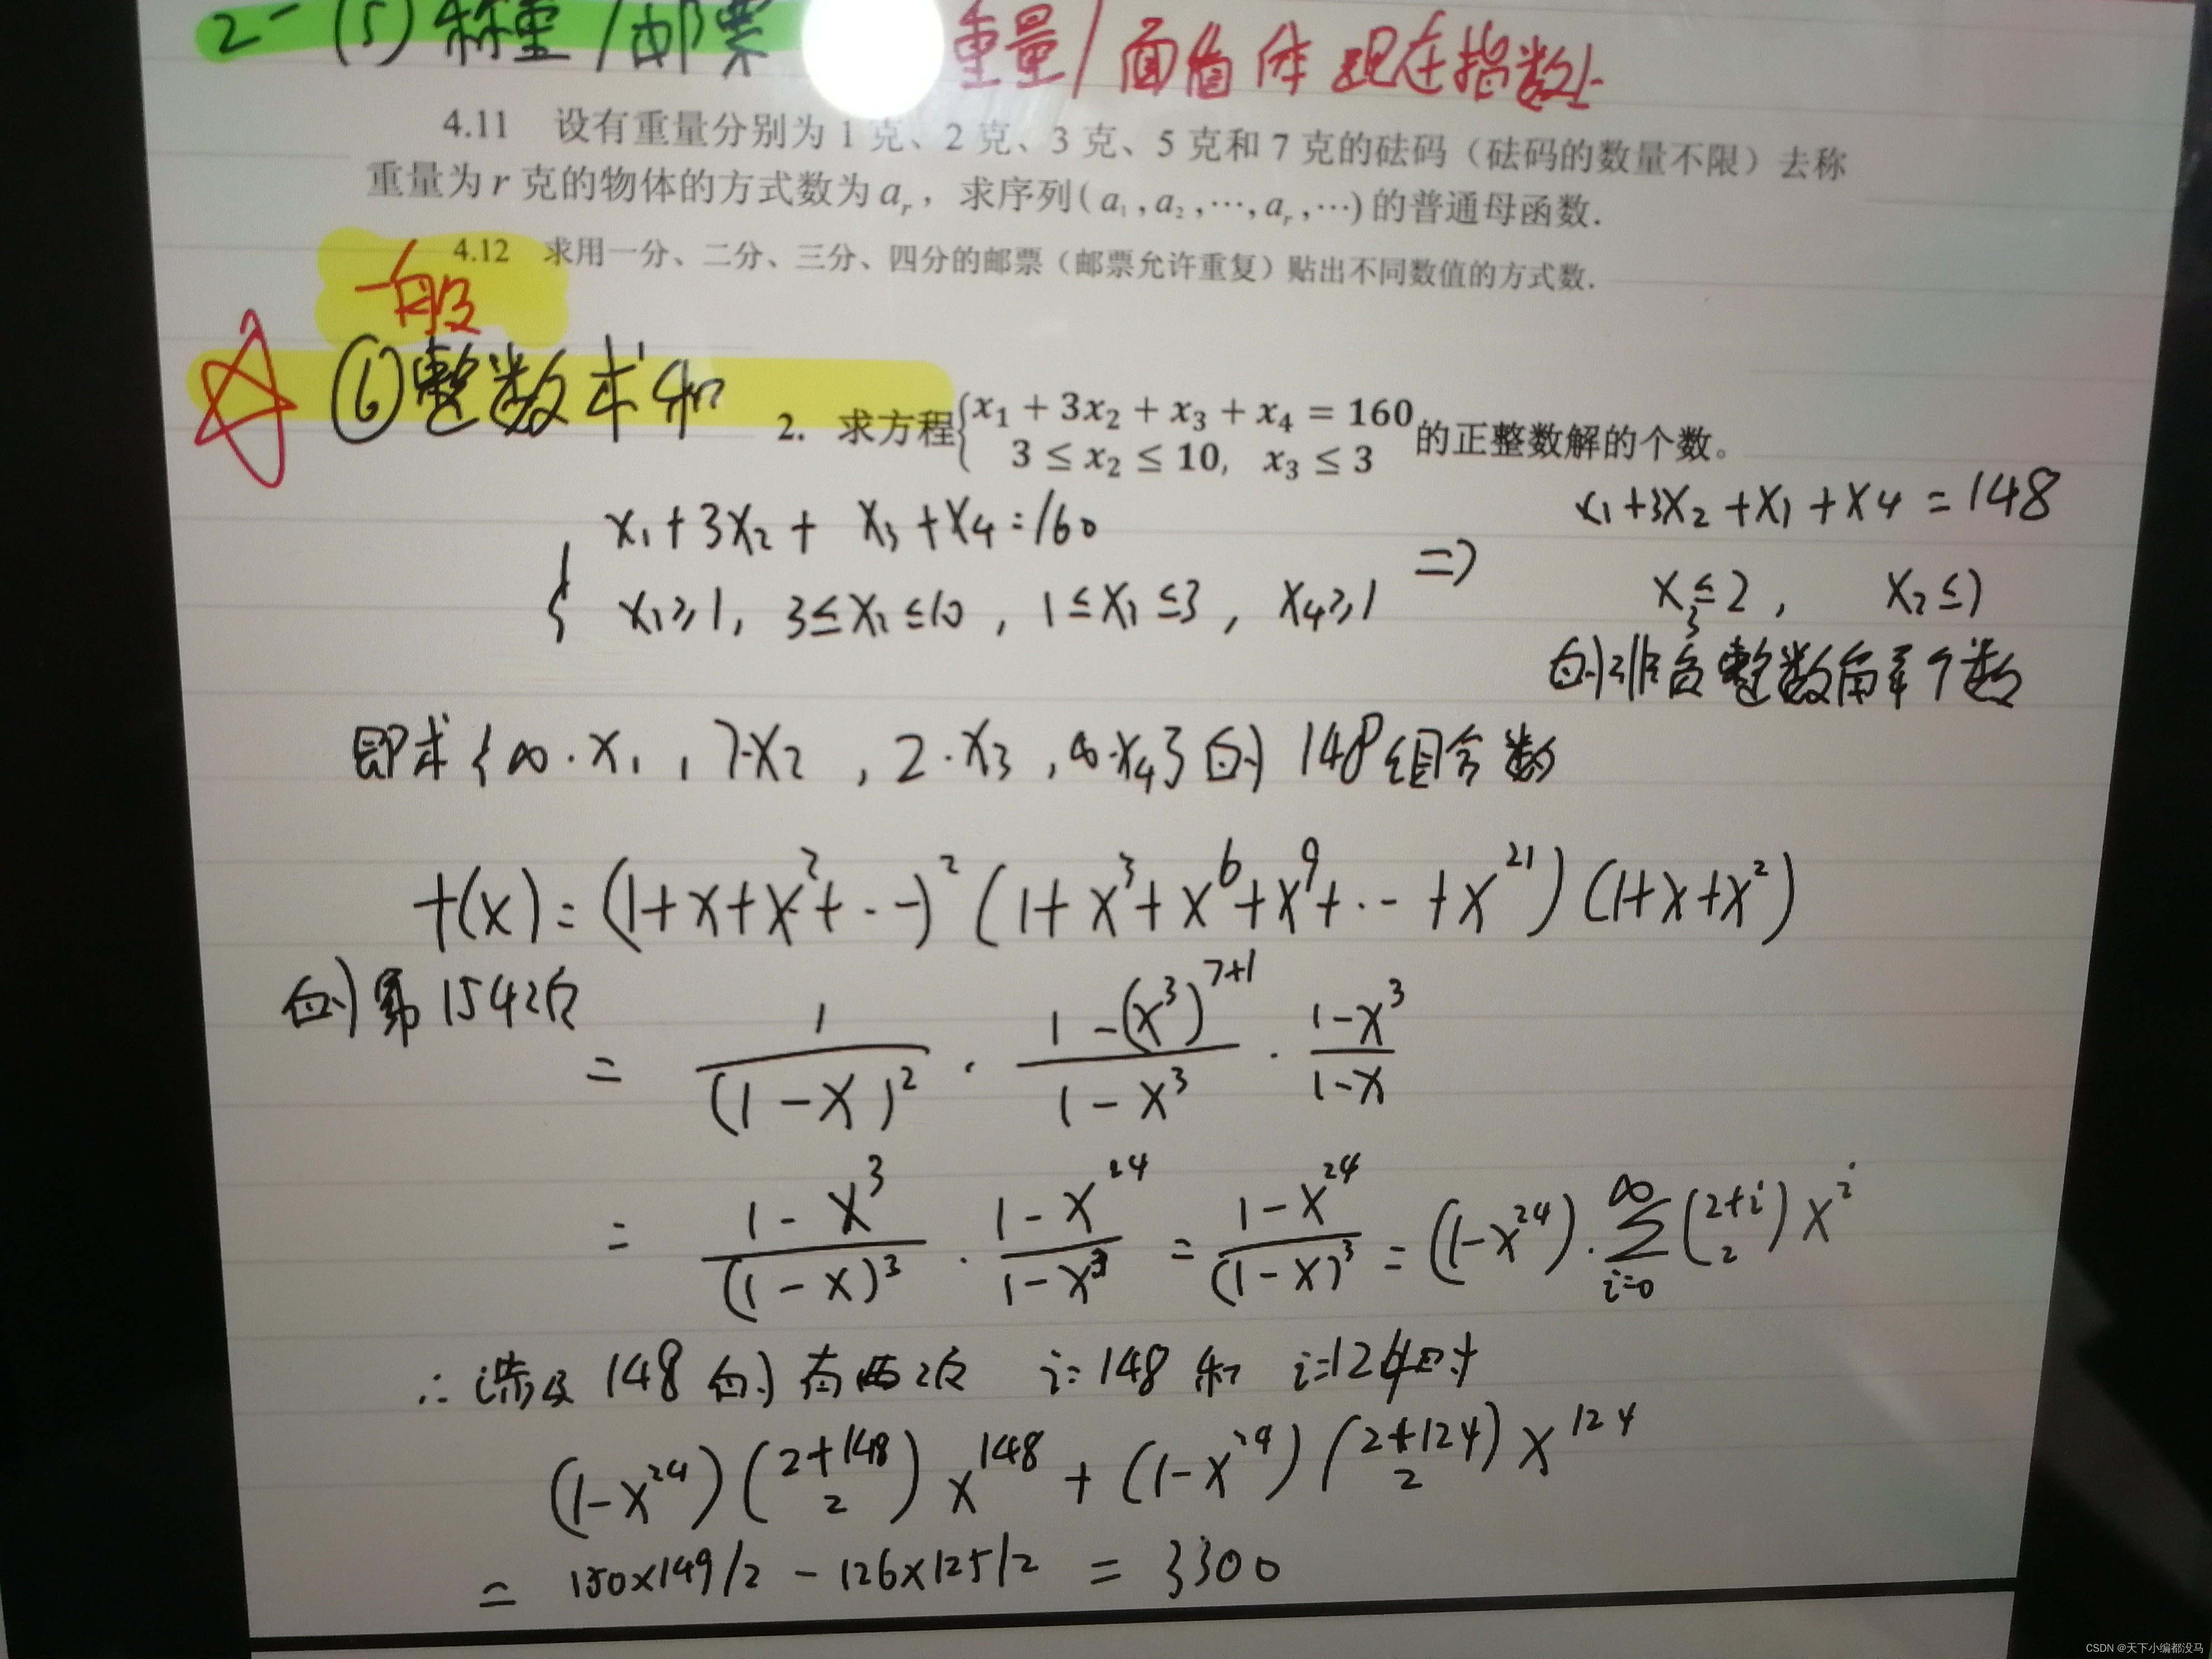 2-(5) 称重/邮票 重量/面值体现在指数上
4.11 设有重量分别为 1 克、2 克、3 克、5 克和 7 克的砝码（砝码的数量不限）去称
重量为 r 克的物体的方式数为 aᵣ，求序列(a₁,a₂,⋯,aᵣ,⋯)的普通母函数.
4.12 求用一分、二分、三分、四分的邮票（邮票允许重复）贴出不同数值的方式数.
一般
⑥整数求和
2. 求方程{x₁ + 3x₂ + x₃ + x₄ = 160
3 ≤ x₂ ≤ 10, x₃ ≤ 3 的正整数解的个数。
{ x₁+3x₂+ x₃+x₄=160
x₁≥1, 3≤x₂≤10, 1≤x₃≤3, x₄≥1 =>
x₁+3x₂+x₃+x₄=148
x₃≤2, x₂≤7
的非负整数解个数
即求{∞·x₁, 7·x₂, 2·x₃, ∞·x₄}的148组合数
f(x)=(1+x+x²+···)²(1+x³+x⁶+x⁹+···+x²¹)(1+x+x²)
的第154次
= 1/(1-x)² · (1-(x³)⁷⁺¹)/(1-x³) · (1-x³)/(1-x)
= (1-x³)/(1-x)³ · (1-x²⁴)/(1-x³) = (1-x²⁴)/(1-x)³ = (1-x²⁴)·∑_{i=0}^{∞} (2+i 2) xⁱ
∴涉及148的有两次 i=148和i=124时
(1-x²⁴)(2+148 2)x¹⁴⁸+(1-x²⁴)(2+124 2)x¹²⁴
= 150×149/2 - 126×125/2 = 3300
CSDN @天下小编都没马